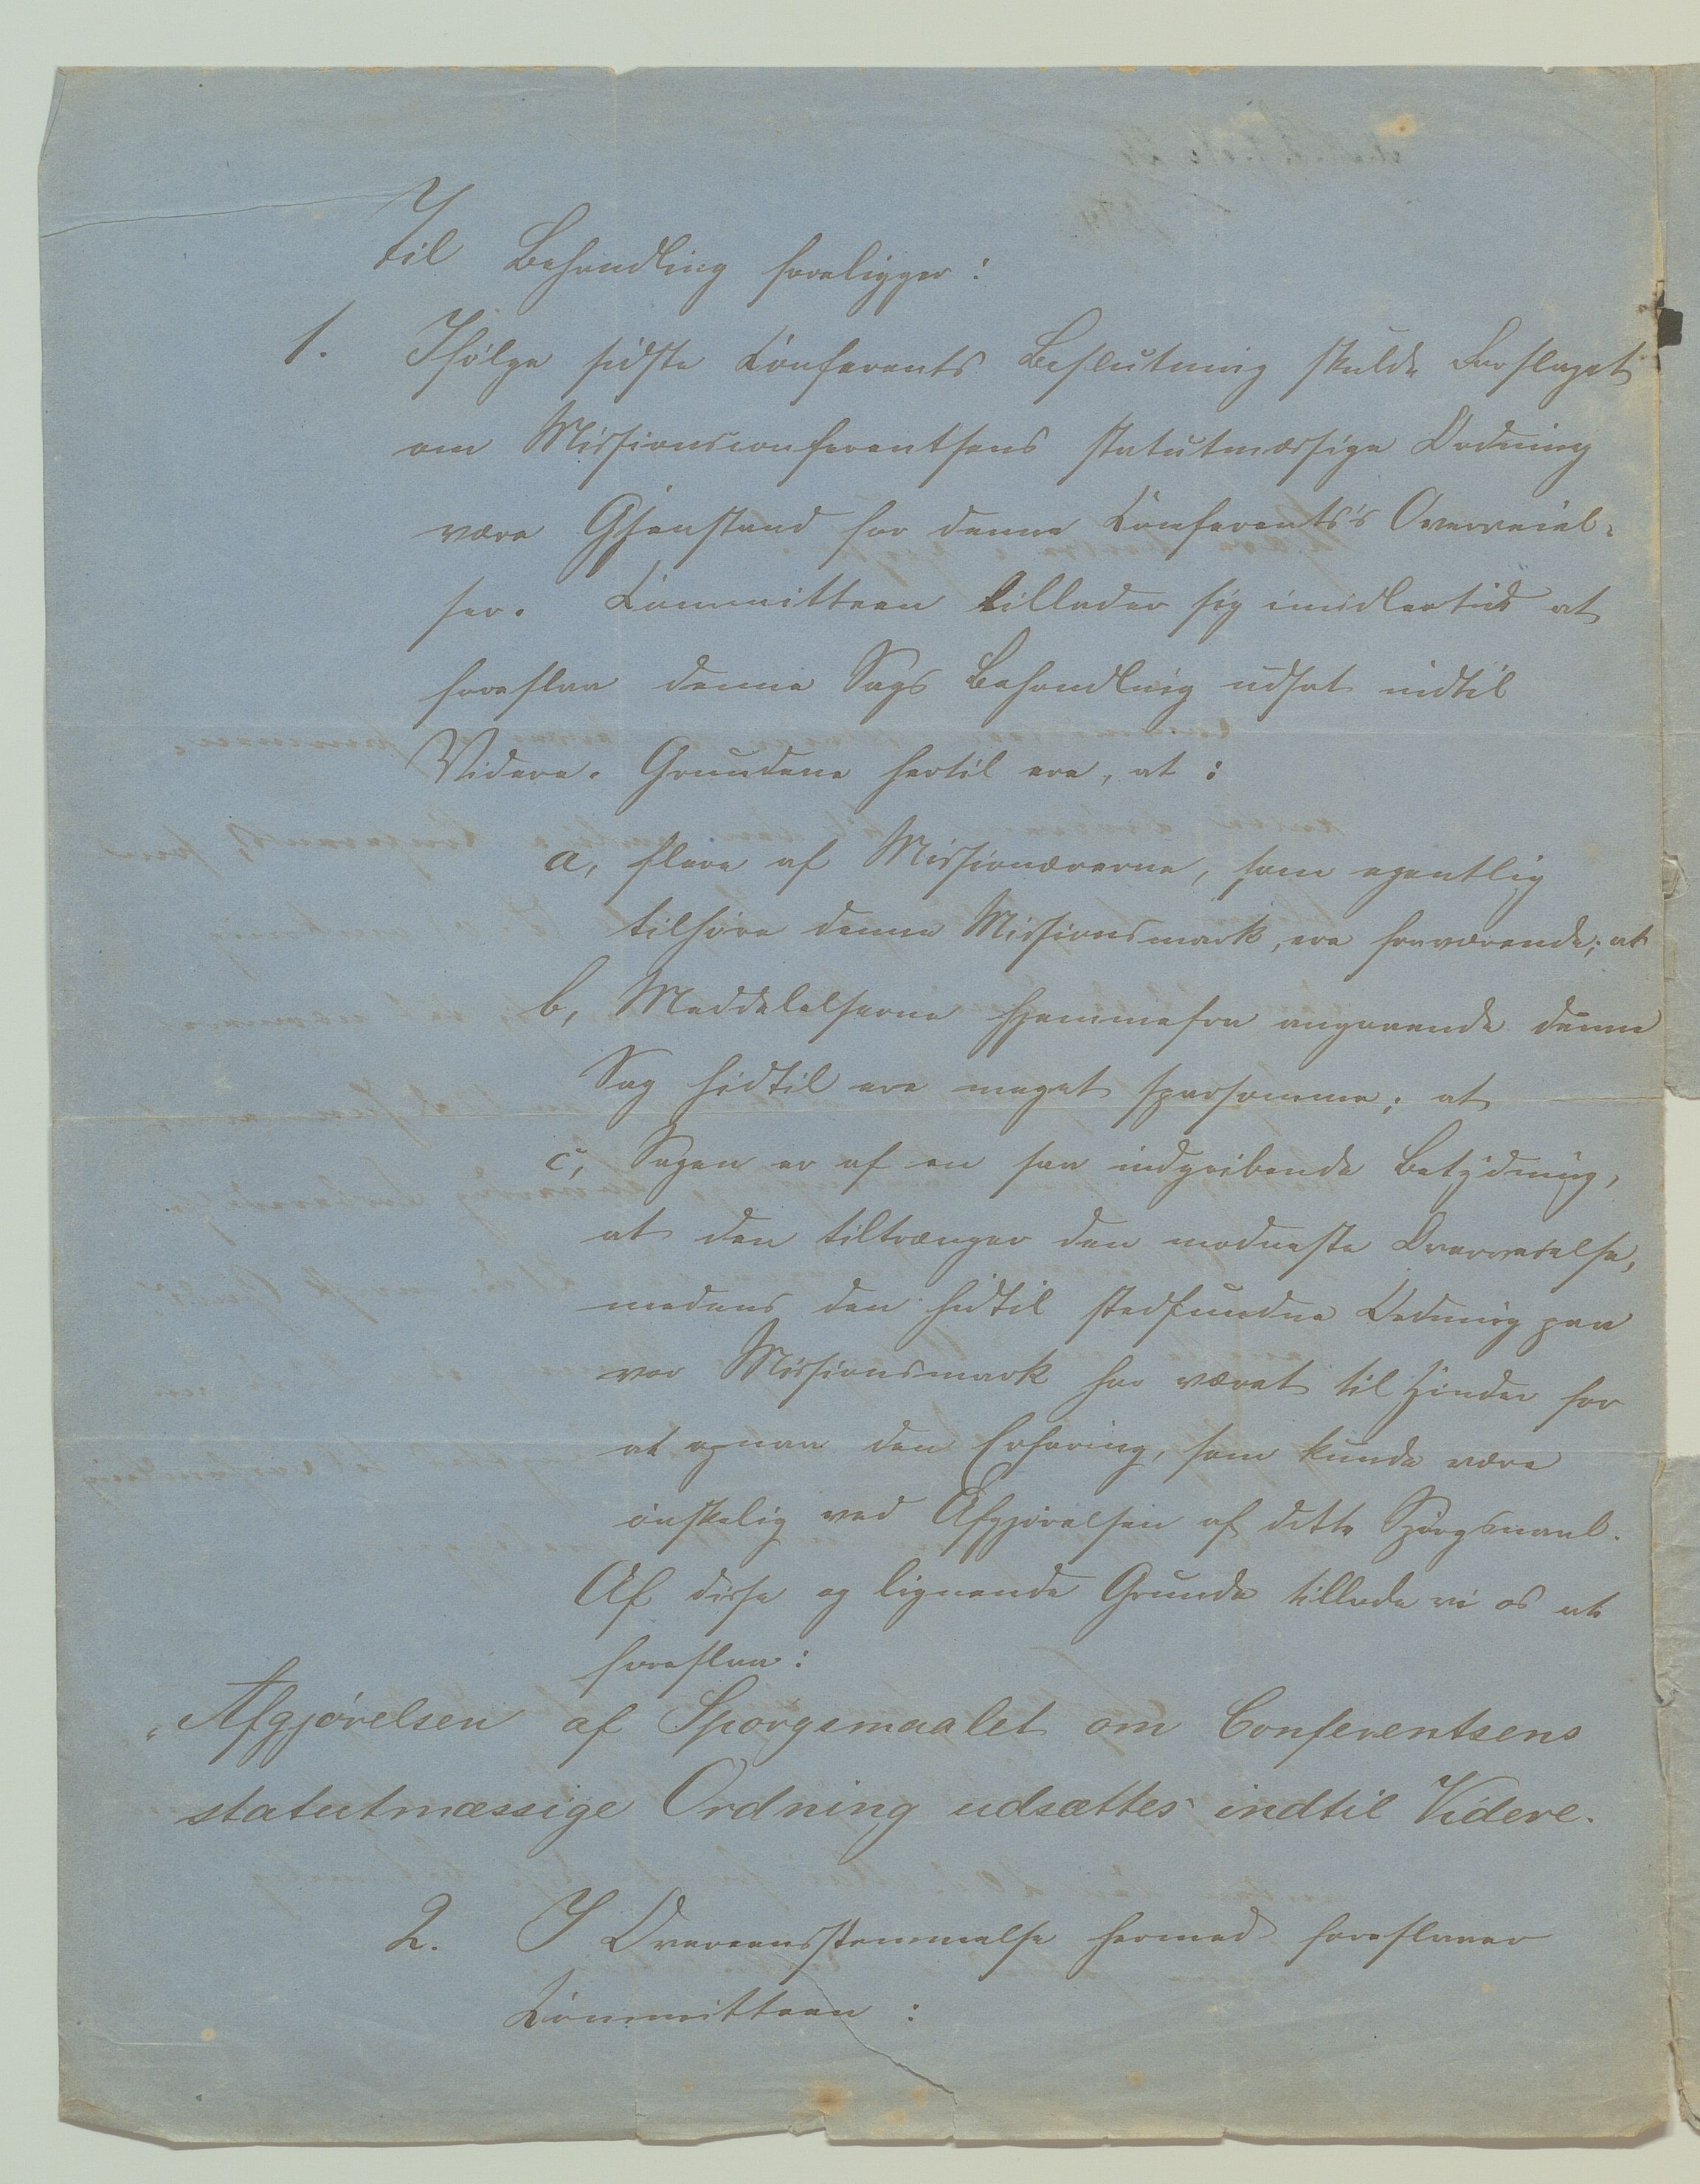 Til Behandling foreligger:
1. Ifølge sidste Conferents Beslutning skulde Forslaget
om Missionsconferentsens statutmæssige Ordning
være Gjenstand for denne Conferents's Overveiel-
ser. Committeen tillader sig imidlertid at
foreslaa denne Sags Behandling udsat indtil
Videre. Grundene hertil ere, at:
a, flere af Missionærerne, som egentlig
tilhøre denne Missionsmark, ere fraværende; at
b, Meddelelserne hjemmefra angaaende denne
Sag hidtil ere meget sparsomme; at
c, Sagen er af en saa indgribende Betydning,
at den tiltrænger den modneste Overveielse,
medens den hidtil stedfundne Ordning paa
vor Missionsmark har været til Hinder for
at opnaa den Erfaring, som kunde være
ønskelig ved Afgjørelsen af dette Spørgsmaal.
Af disse og lignende Grunde tillade vi os at
foreslaa:
"Afgjørelsen af Spørgsmaalet om Conferentsens
statutmæssige Ordning udsættes indtil Videre.
2. I Overeensstemmelse hermed foreslaaer
Committeen: